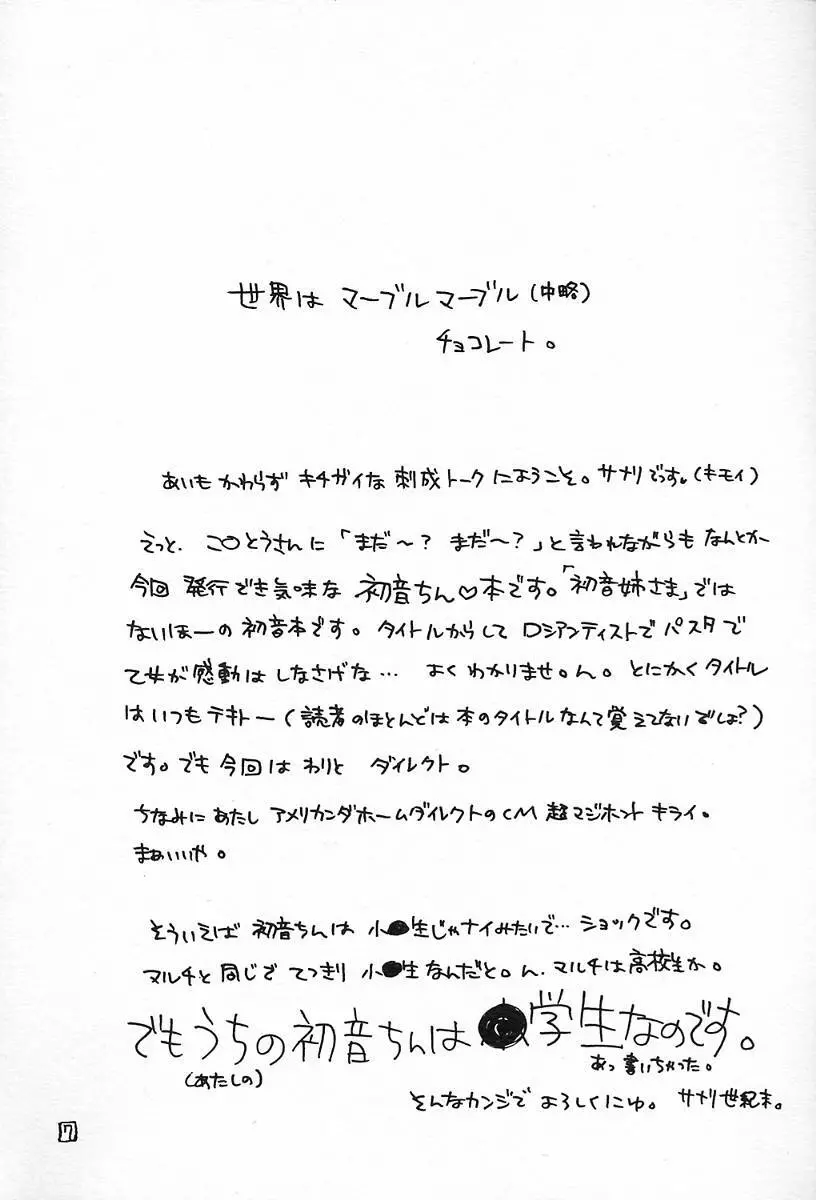 世界は マーブルマーブル(中略)
チョコレート。
あいもかわらず キチガイな 刺成トークにようこそ。サナリでっす。(キモイ)
えっと、こ〇とうさんに「まだ～? まだ～?」と言われながらも なんとか
今回 発行でき気味な 初音ちん♡本です。「初音姉さま」では
ないほーの 初音本です。タイトルからして ロシアンティストで パスタで
て女が 感動は しなさげな… よくわかりませ。ん。とにかくタイトル
はいつもテキトー(読者のほとんどは本のタイトルなんて覚えてないでしょ?)
です。でも今回は わりと ダイレクト。
ちなみに あたし アメリカンダホームダイレクトのCM 超マジホント キライ。
まぁいいや。
そういえば 初音ちんは 小●生じゃナイみたいで… ショックです。
マルチと同じで てっきり 小●生なんだと。ん、マルチは高校生か。
でもうちの初音ちんは●学生なのです。
(あたしの)
あっ書いちゃった。
そんなカンジで よろしくにゅ。 サナリ世紀末。
7